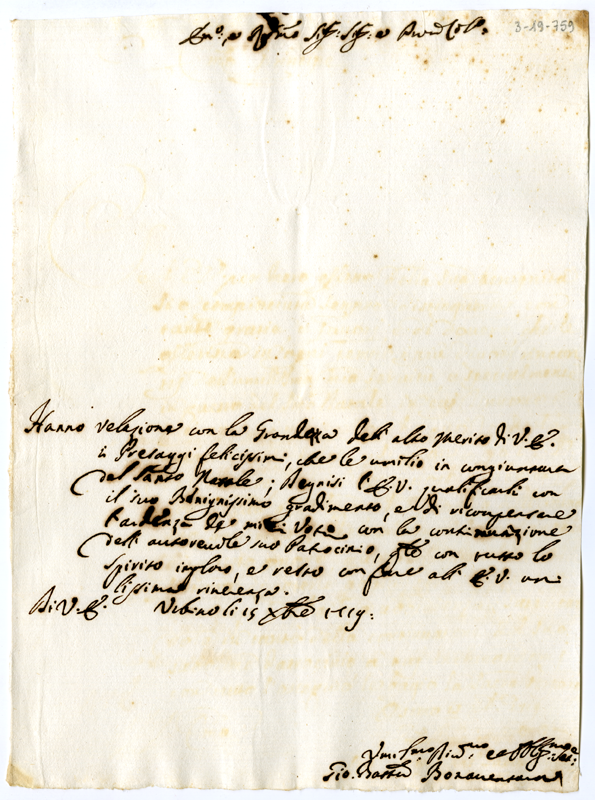 Em.o e R.mo Sig.r Sig.r e Pron Col.mo
3-19-759
Hanno relazione con la Grandezza dell'alto Merito di V. E.
i Presaggi felicissimi, che le umilio in congiuntura
del Santo Natale; Degnisi l'E. V. qualificarli con
il suo Benignissimo gradimento, e di ricompensare
l'ardenza de miei Voti con la continuazione
dell'autorevole suo Patrocinio, che con tutto lo
spirito imploro, e resto con fare all'E. V. umi
lissima riverenza.
Di V. E. Urbino li 15 Xbre 1719:
Umi.mo Div.mo et Obblig.mo Ser.
Gio. Batta Bonaventura